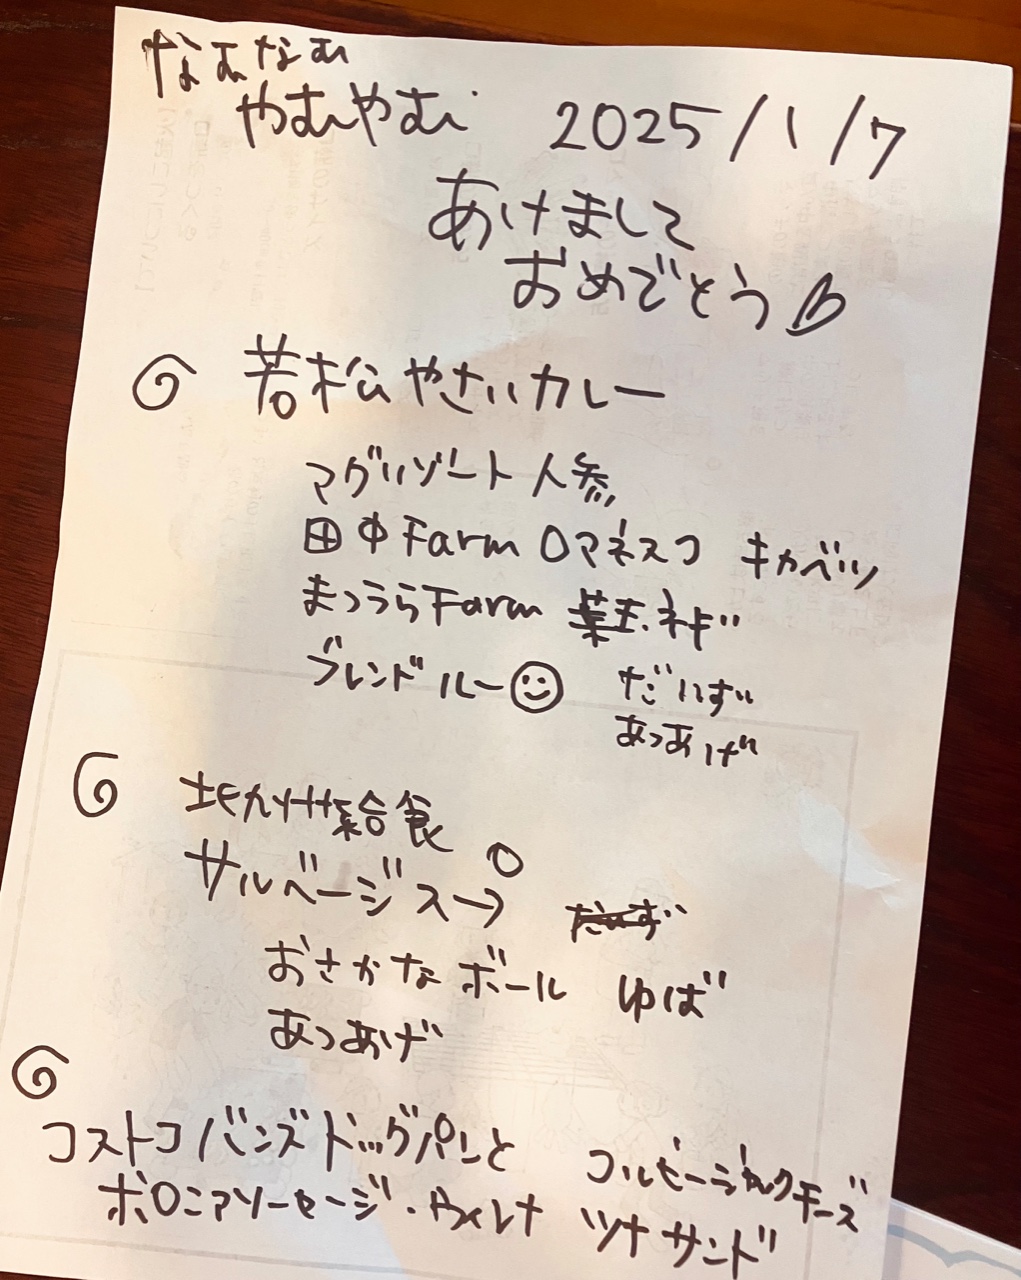 なむなむ
やむやむ 2025/1/7
あけまして
おめでとう
若松やさいカレー
マグリゾート人参
田中Farm ロマネスコ キャベツ
まつうらFarm 葉玉ネギ
ブレンドルー だいず
あつあげ
北九州給食
サルベージスープ
だいず
おさかなボール ゆば
あつあげ
コストコバンズドッグパンと コルビージャックチーズ
ボロニアソーセージ・ ツナサンド